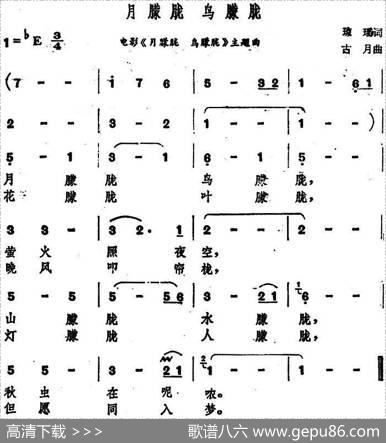 月朦胧 鸟朦胧
琼瑶词
1=♭E 3/4
电影《月朦胧 鸟朦胧》主题曲
古月曲
(7 - - | 1 7 6 | 5 - 3 2 | 1 - 6 1 |
2 - - | 3 - 2 | 1 - - | 1 - - ) |
5 - 1 | 3 - 3 - | 6 - 1 | 5 - - |
月 朦 胧 鸟 朦 胧,
花 朦 胧 叶 朦 胧,
3 3 - | 3 2. 1 | 2 - - | 2 - - |
萤 火 照 夜 空,
晚 风 叩 帘 栊,
5 - 5 | 5 - 5 6 | 3 - 2 1 | 6 - - |
山 朦 胧 水 朦 胧,
灯 朦 胧 人 朦 胧,
5 5 - | 3 - 2 1 | 1 - - | 1 - - |
秋 虫 在 呢 哝。
但 愿 同 入 梦。
高清下载 >>>
歌谱八六 www.gepu86.com